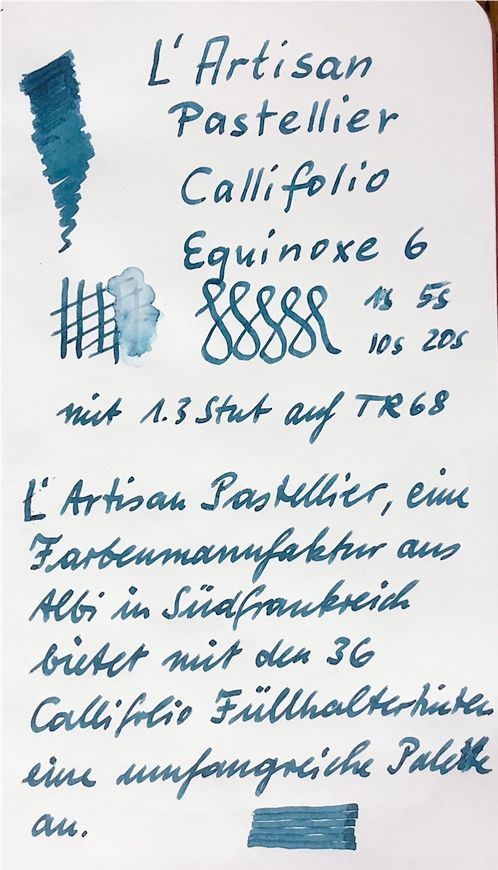 L'Artisan
Pastellier
Callifolio
Equinoxe 6
1s 5s
10s 20s
mit 1.3 Stut auf TR68
L'Artisan Pastellier, eine
Farbenmanufaktur aus
Albi in Südfrankreich
bietet mit den 36
Callifolio Füllhaltertinten
eine umfangreiche Palette
an.